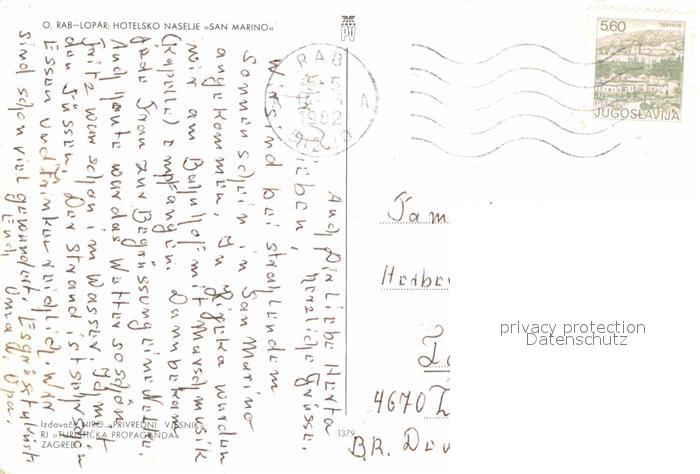 O. RAB–LOPAR: HOTELSKO NASELJE »SAN MARINO«
PV
RAB
1982
A
5.60
TRAVNIK
JUGOSLAVIJA
Auch Dir liebe Herta
Ihr Lieben, herzliche Grüsse.
Wir sind bei strahlendem
Sonnenschein in San Marino
angekommen. In Rijeka wurden
wir am Bahnhof mit Marschmusik
(Kapelle) empfangen. Dann bekam
jede Frau zur Begrüssung eine Nelke.
Auch heute war das Wetter so schön
Fritz war schon im Wasser, ich mit
den Füssen. Der Strand ist sehr schön
Essen und Trinken reichlich. Wir
sind schon viel gewandert. Es grüsst
Euch Oma u. Opa.
Fam
Herber
4670 L
BR. Deu
Izdavač: NIRO »PRIVREDNI VJESNIK«
RJ »TURISTIČKA PROPAGANDA«
ZAGREB
1379
privacy protection
Datenschutz